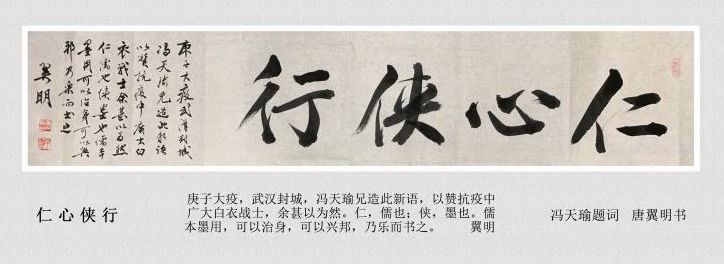 仁心俠行
庚子大疫武漢封城
馮天瑜兄造此新語
以贊抗疫中廣大白
衣戰士余甚以為然
仁儒也俠墨也儒本
墨用可以治身可以興
邦乃樂而書之
翼明
仁心侠行
庚子大疫，武汉封城，冯天瑜兄造此新语，以赞抗疫中
广大白衣战士，余甚以为然。仁，儒也；侠，墨也。儒
本墨用，可以治身，可以兴邦，乃乐而书之。 翼明
冯天瑜题词 唐翼明书